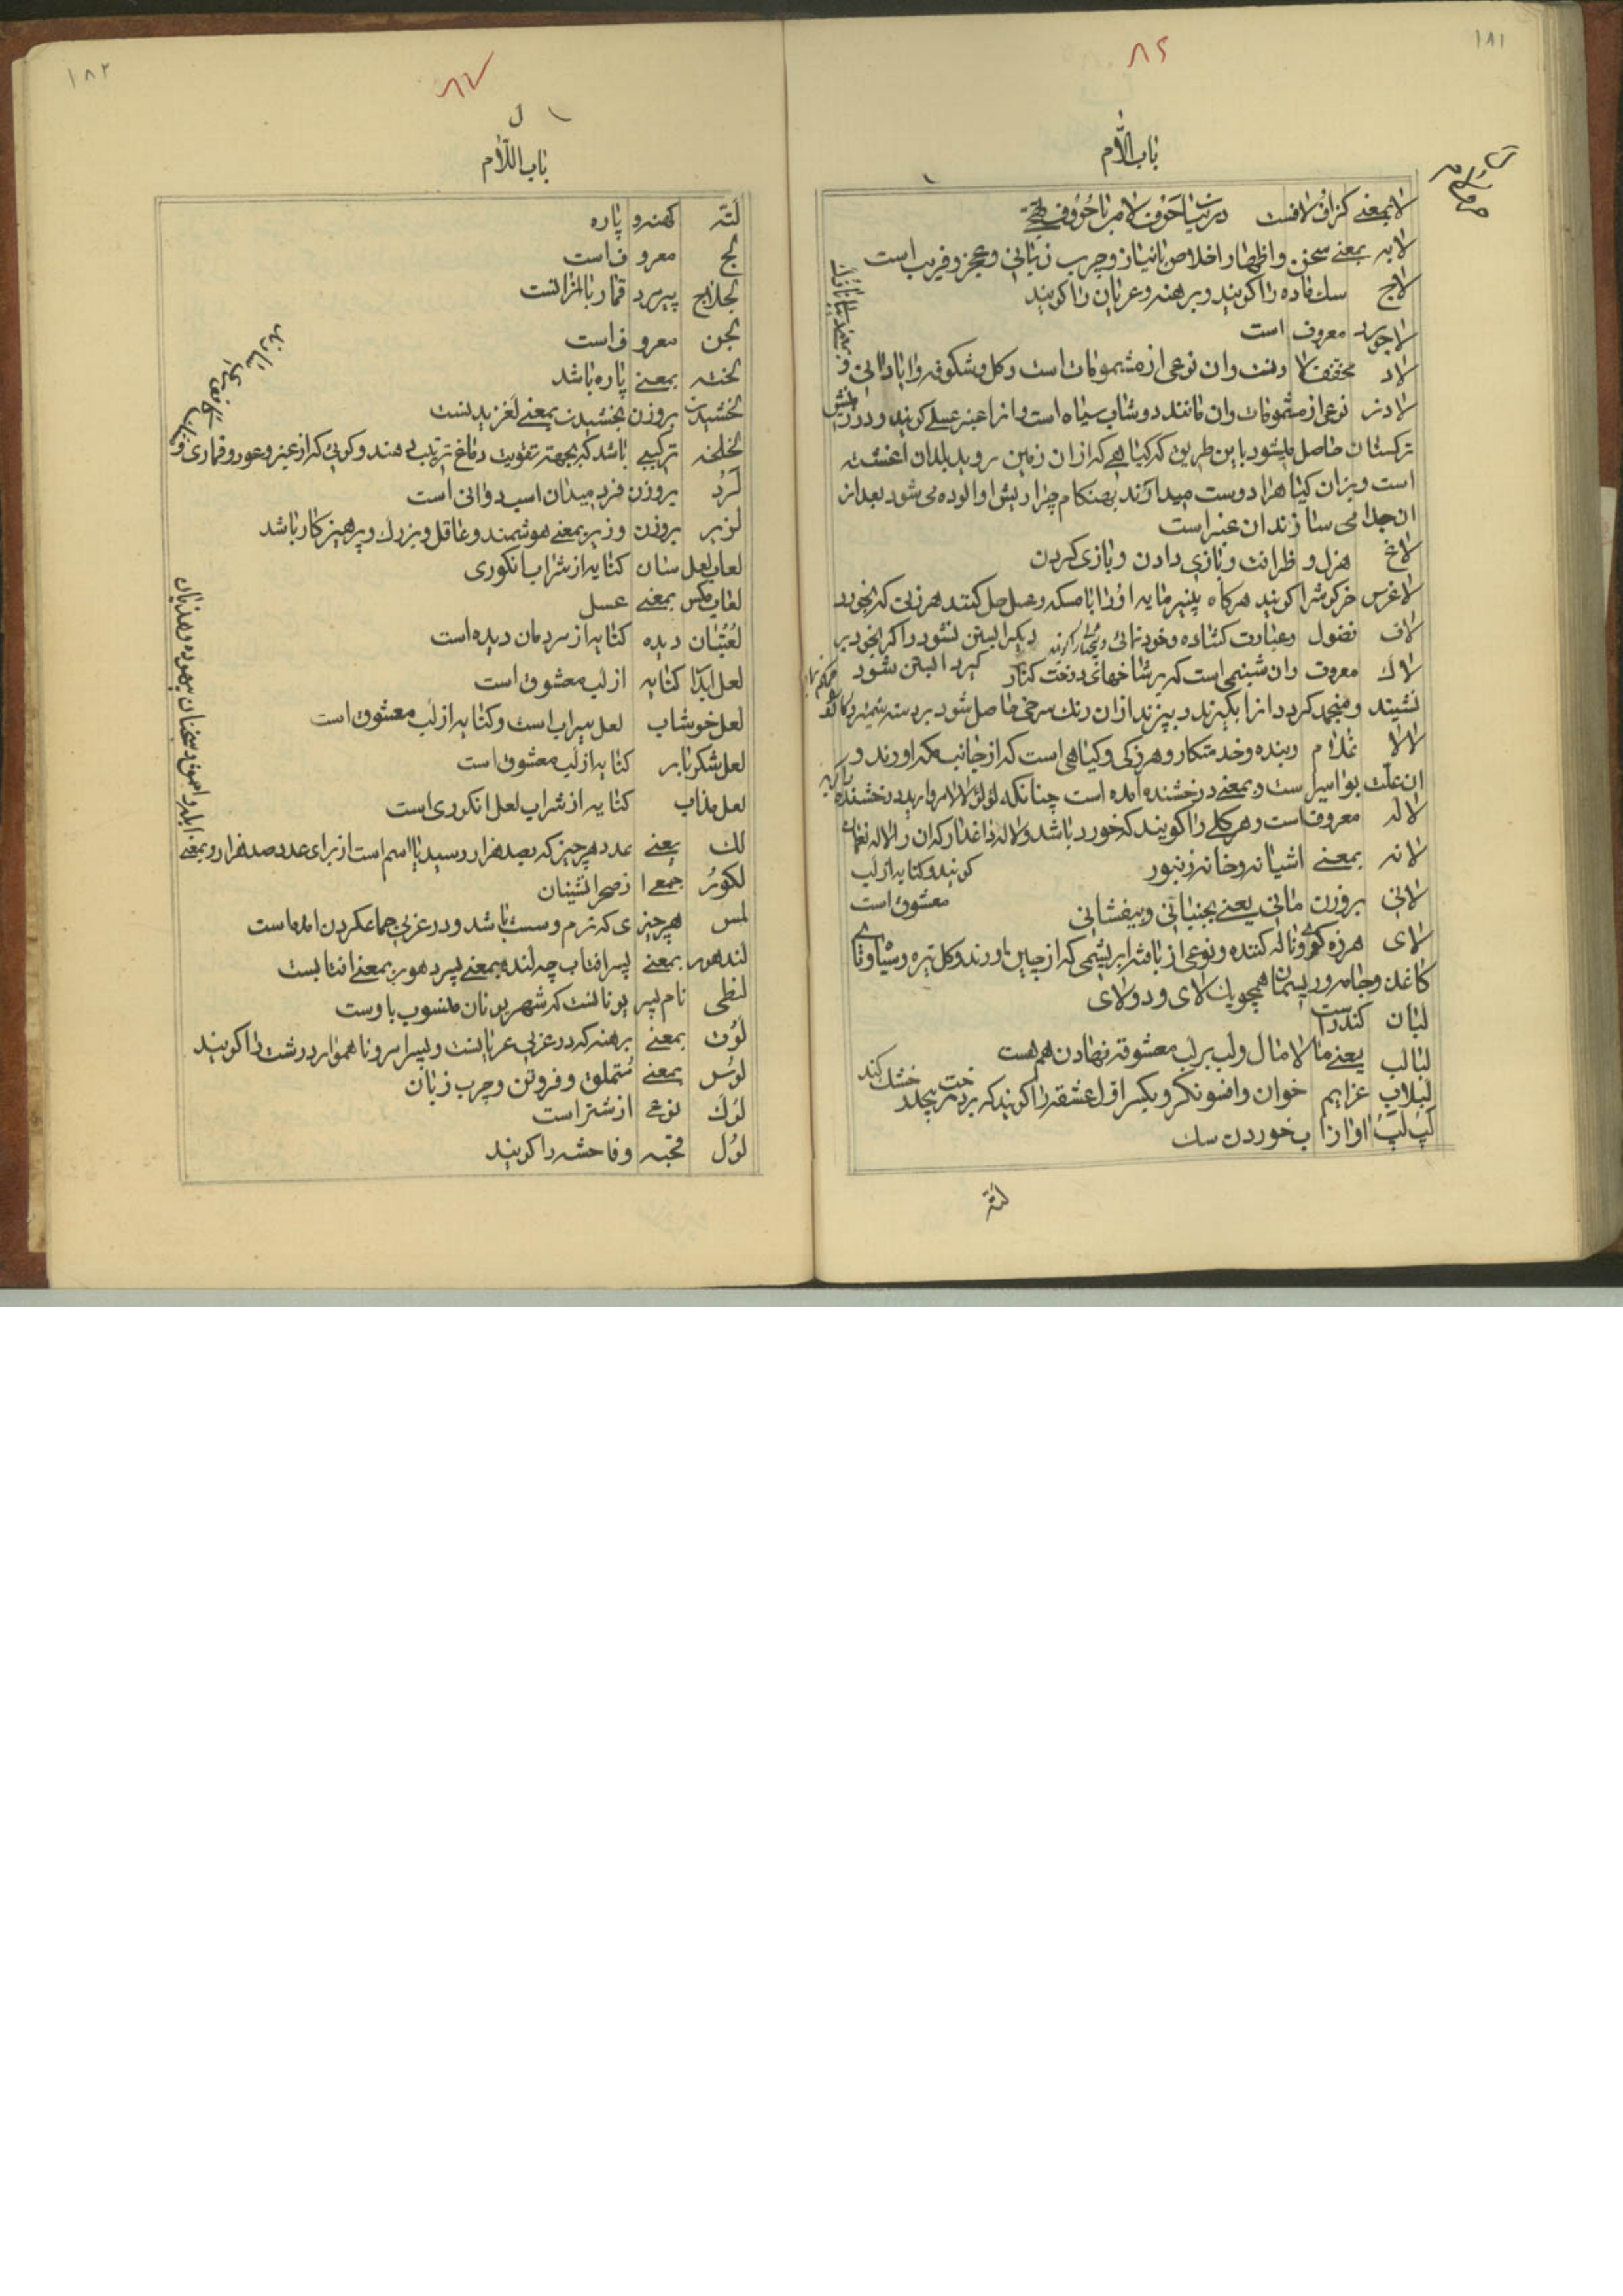 ۱۸۱
۸۶
باب اللّام
لا بمعنے کزاف و لافست در بیان حرف لام با حروف تهجی
لابه بمعنے سخن و اظهار اخلاص با نیاز و چرب زبانی و عجز و فریب است
لاج سک ماده را کویند و برهنه و عریان را کویند
لاجورد معروف است
لاد مخفف لادنست وان نوعی از مشمومات است و کل و شکوفه و ابادانی و
لادن نوعی از مشمومات وان مانند دوشاب سیاه است و انرا عنبر عسلی کویند و در
ترکستان حاصل میشود باین طریق که کیاهی که از ان زمین روید بلدان اغشته
است و بزان کیاه را دوست میدارند بهنکام چرا ریش او الوده می شود بعد از
ان جدا می سازند ان عنبر است
لاغ هزل و ظرافت و بازی دادن و بازی کردن
لاغرس خرکوش را کویند هرکاه پنیر مایه او را با مسکه و عسل حل کنند هر زنی که بخورد
لاف فضول و عبارت کشاده و خود نمائی دیکر ابستن نشود و اکر بخود بر
لاک معروف وان شبنمی است که بر شاخهای درخت کنار کیرد ابستن شود
نشیند و منجمد کردد انرا بکیرند و بپزند ازان رنک سرخی حاصل شود
لالا غلام و بنده و خدمتکار و هرزکی و کیاهی است که از جانب مکه اورند و
ان علت بواسیر است و بمعنے درخشنده امده است چنانکه لؤلؤ لالا مروارید درخشنده
لاله معروفست و هر کلے را کویند که خورد باشد و لاله داغدار که ان را لاله نعمان
لانه بمعنے اشیانه و خانه زنبور کویند و کنایه از لب
معشوق است
لانی بروزن مانی یعنے بجنبانی و بیفشانی
لای هرزه کوی و ناله کننده و نوعی از بافته ابریشمی که از چین اورند و کل تیره و سیاه و تای
کاغذ و جامه و ریسمان همچو یک لای و دو لای
لبان کندر است
لبالب یعنے مالامال و لب بر لب معشوقه نهادن هم هست
لبلاب عزایم خوان و افسونکر و بکسر اول عشقه را کویند که بر درخت پیچد خشک کند
لپ لپ اواز اب خوردن سک
لته
۱۸۲
۸۷
ل
باب اللّام
لته کهنه و پاره
لج معروف است
لجلاج پیر مرد قمار باز انست
لجن معروف است
لخته بمعنے پاره باشد
لخشیدن بروزن بخشیدن بمعنے لغزیدنست
لخلخه ترکیبے باشد که بجهته تقویت دماغ ترتیب دهند و کوئی که از عنبر و عود و قماری و
لرد بروزن فرد میدان اسب دوانی است
لزیر بروزن وزیر بمعنے هوشمند و عاقل و بزرک و پرهیز کار باشد
لعاب لعل سان کنایه از شراب انکوری
لعاب مکس بمعنے عسل
لعبتان دیده کنایه از مردمان دیده است
لعل ابدار کنایه از لب معشوق است
لعل خوشاب لعل سیراب است و کنایه از لب معشوق است
لعل شکربار کنایه از لب معشوق است
لعل مذاب کنایه از شراب لعل انکوری است
لک یعنے عدد هر چیز که بصد هزار رسید با اسم است از برای عدد صد هزار و بمعنی
ابله و احمق و سخنان بیهوده و هذیان
لکور جمعے از صحرانشینان
لمس هر چیزی که نرم و سست باشد و در عربی جماع کردن امده است
لندهور بمعنے پسر افتاب چه لند بمعنے پسر و هور بمعنے افتابست
لنطی نام پسر یونانست که شهر یونان منسوب باوست
لوت بمعنے برهنه که در عربی عریانست و پسر امرد و ناهموار درشت را کویند
لوس بمعنے متملق و فروتن و چرب زبان
لوک نوعے از شتر است
لول قحبه و فاحشه را کویند